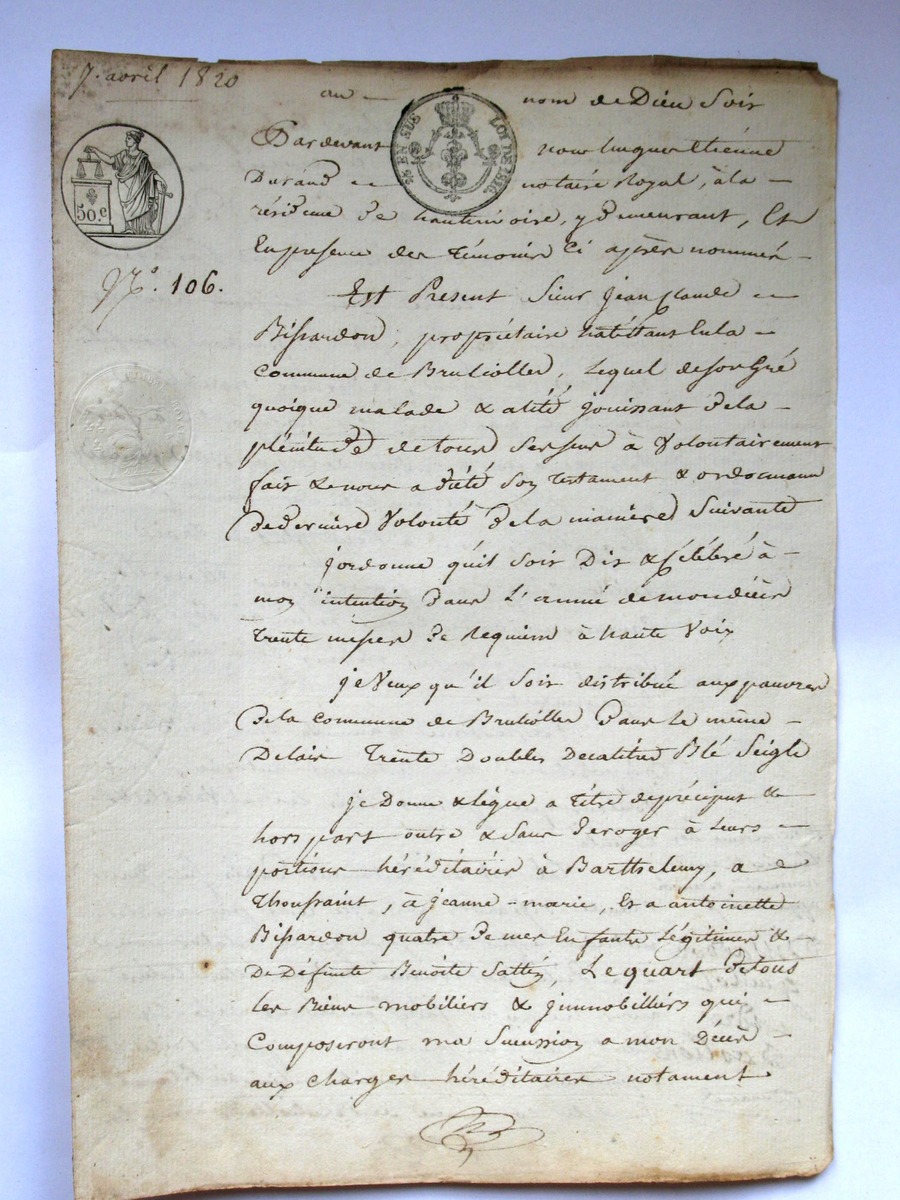 7. avril 1820
au nom de Dieu Soit
Pardevant nous Etiénne
EN SUS LOI DE 1816
Durand notaire Royal, à la
50.c
résidence de hauterivoire, y demeurant, Et
En presence des témoins Ci après nommés
N.º 106.
Est Present Sieur Jean Claude
Bissardon, propriétaire habittant En la
Commune de Brullioller, Lequel de son Gré
quoique malade & alité jouissant de la
plénitude de tous Ses sens à Volontairement
fait & nous a dicté Son testament & ordonnance
de derniére Volonté de la maniere Suivante
j'ordonne qu'il Soit Dit & Célébré à
mon intention Dans L'année de mon décès
trente messes de Requiem à haute Voix
je Veux qu'il Soit distribué aux pauvres
de la Commune de Brullioller Dans Le même
Delais Trente Doubles Decalitres Blé Seigle
je Donne & lègue a titre de préciput &
hors part outre & Sans déroger à Leurs
portions héréditaires à Barthelemy, a
Thoussaint, à Jeanne-marie, Et a antoinette
Bissardon quatre de mes Enfants Légitimes &
De Défunte Benoîte Le quart De tous
les Biens mobiliers & jmmobilliers qui
Composeront ma Sucession a mon Décès
aux Charges héréditaires notament